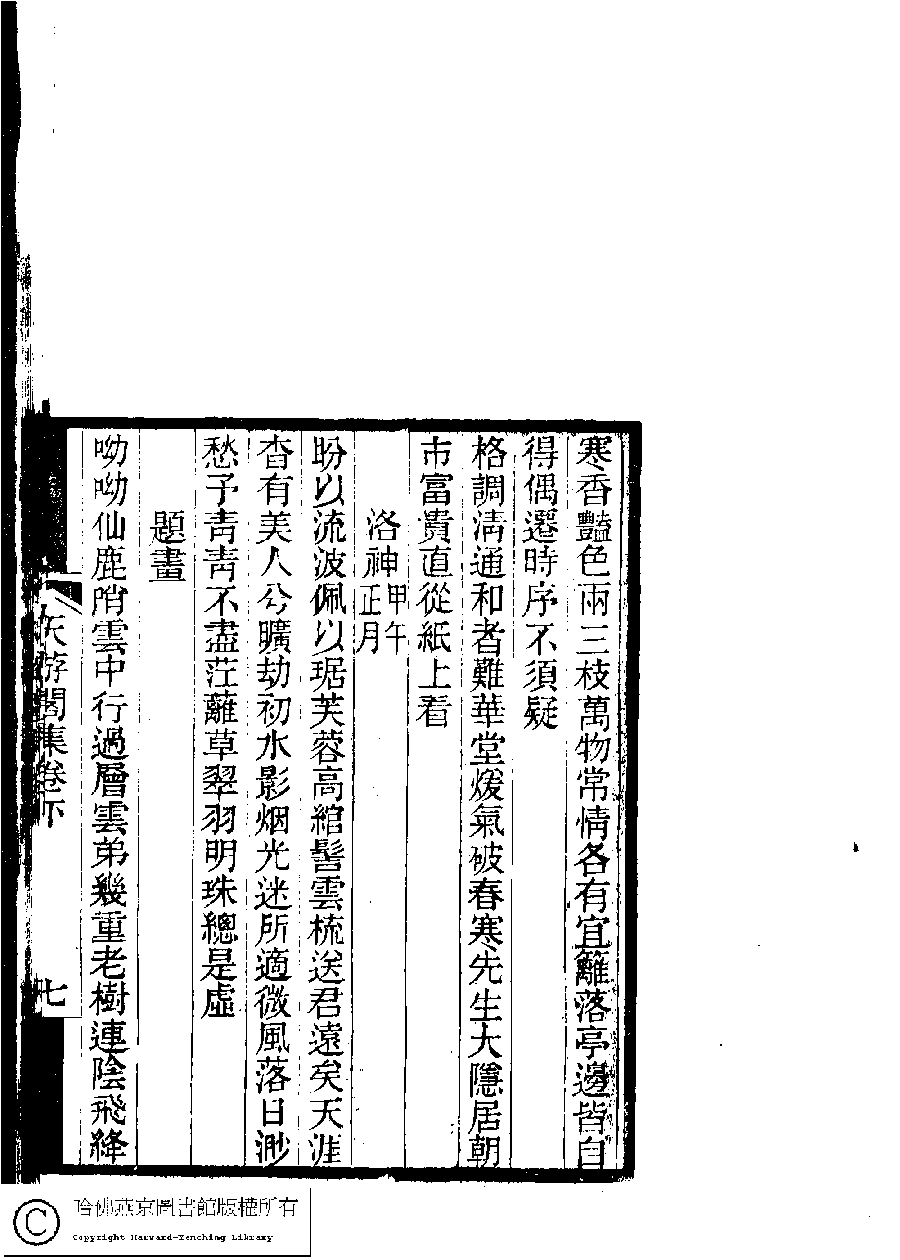 寒香豔色兩三枝萬物常情各有宜籬落亭邊皆自
得偶遷時序不須疑
格調清通和者難華堂煖氣破春寒先生大隱居朝
市富貴直從紙上看
洛神甲午正月
盼以流波佩以琚芙蓉高綰髻雲梳送君遠矣天涯
杳有美人兮曠劫初水影烟光迷所適微風落日渺
愁予靑靑不盡茳蘺草翠羽明珠總是虛
題畫
呦呦仙鹿陗雲中行過層雲弟幾重老樹連陰飛絳
天游閣集卷下
七
哈佛燕京圖書館版權所有
Copyright Harvard-Yenching Library